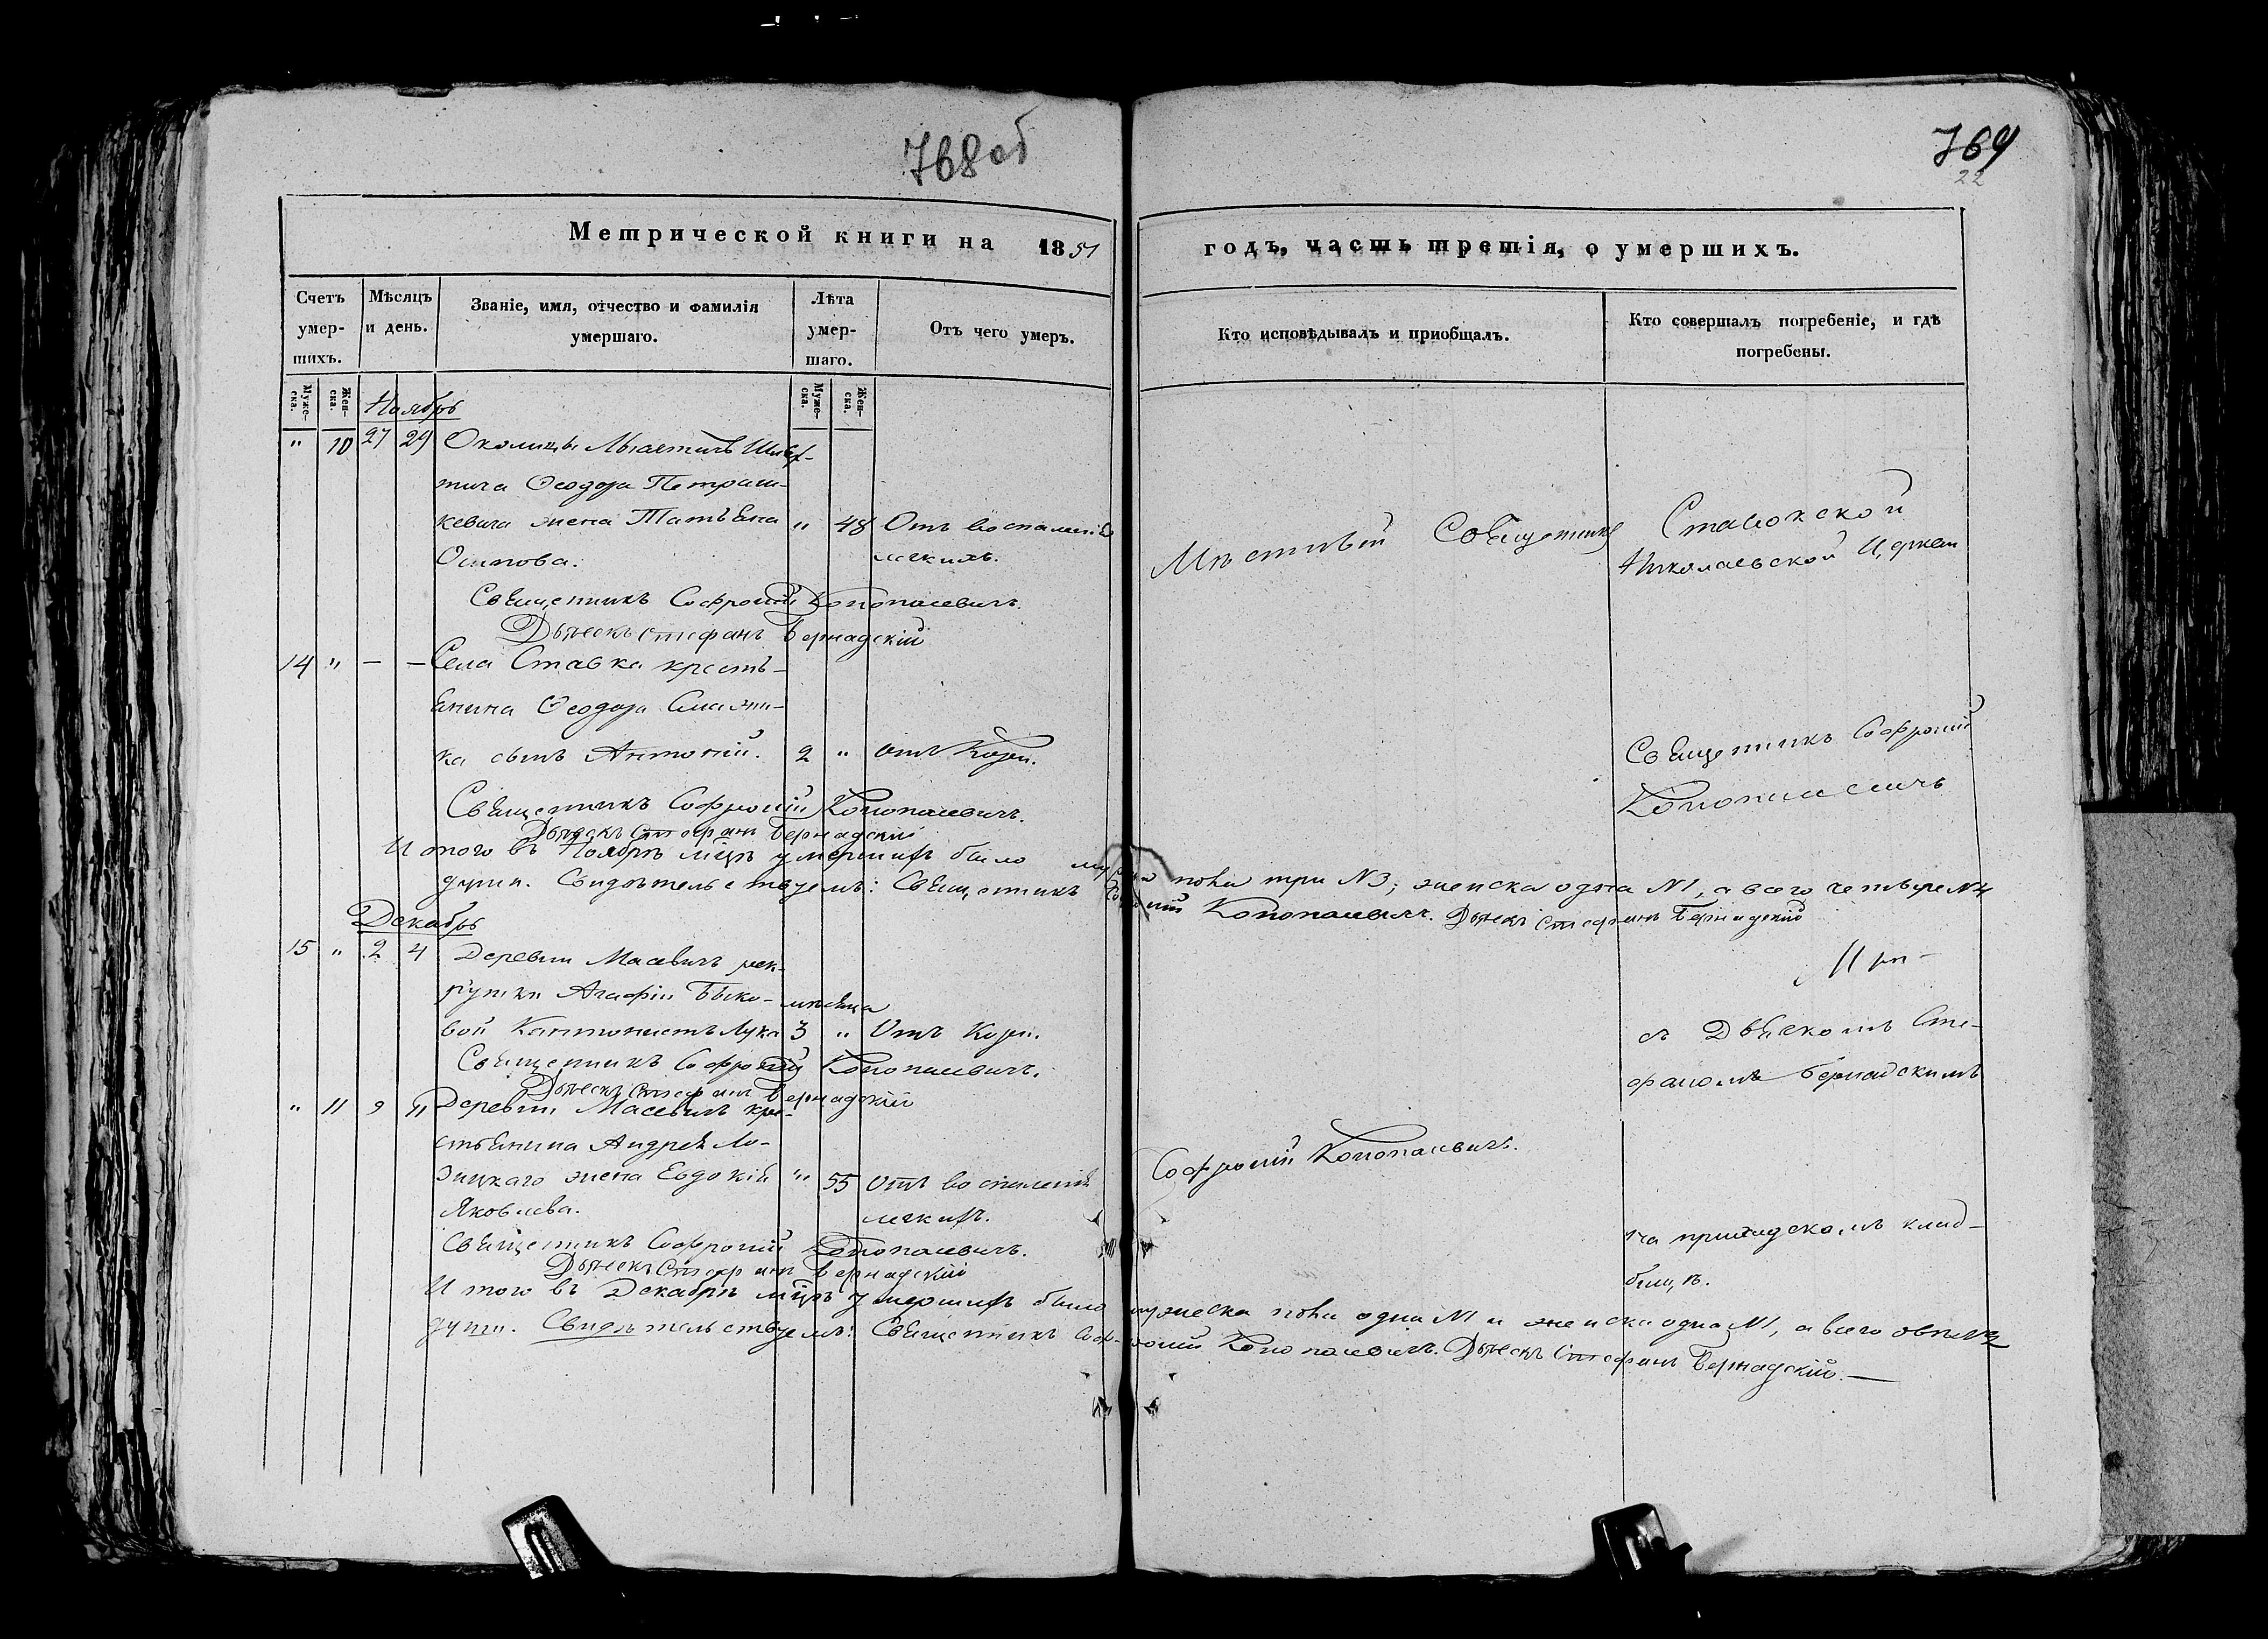 768об
769
22
Метрической книги на 1851
годъ, часть третія, о умершихъ.
Счетъ умер-шихъ.
Мѣсяцъ и день.
Званіе, имя, отчество и фамилія умершаго.
Лѣта умер-шаго.
Отъ чего умеръ.
Кто исповѣдывалъ и приобщалъ.
Кто совершалъ погребеніе, и гдѣ погребены.
Муже-ска.
Жен-ска.
Муже-ска.
Жен-ска.
Ноябрь
" 10 27 29 Околицы
тича Ѳеодора Петраш-
кевича жена Татьяна " 48 Отъ воспаленія
Осипова. легкихъ.
Мѣстный Священникъ
Ставокской
Николаевской Церкви
Священникъ Софроній Конопасевичъ.
Дьячекъ Стефанъ Бернадскій
14 " — — Села Ставка кресть-
янина Ѳеодора
ка сынъ Антоній. 2 " Отъ Кори.
Священникъ Софроній
Конопасевичъ
Священникъ Софроній Конопасевичъ.
Дьячекъ Стефанъ Бернадскій
Итого въ Ноябрѣ мцѣ умершихъ было мужеска пола три №3; женска одна №1, а всего четыре №4
души. Свидѣтельствуемъ: Священникъ Софроній Конопасевичъ. Дьячекъ Стефанъ Бернадскій
Декабрь
15 " 2 4 Деревни Масевичъ рек-
рутки Агафіи Быко- мѣсяца
вой Кантонистъ Лука 3 " Отъ Кори.
При-
съ Дьячкомъ Сте-
фаномъ Бернадскимъ
Священникъ Софроній Конопасевичъ.
Дьячекъ Стефанъ Бернадскій
" 11 9 11 Деревни Масевичъ кре-
стьянина Андрея Ло-
зицкаго жена Евдокія " 55 Отъ воспаленія
Яковлева. легкихъ.
Софроній Конопасевичъ.
на приходскомъ клад-
бищѣ.
Священникъ Софроній Конопасевичъ.
Дьячекъ Стефанъ Бернадскій
Итого въ Декабрѣ мцѣ умершихъ было мужеска пола одна №1 и женска одна №1, а всего двѣ №2
души. Свидѣтельствуемъ: Священникъ Софроній Конопасевичъ. Дьячекъ Стефанъ Бернадскій.—